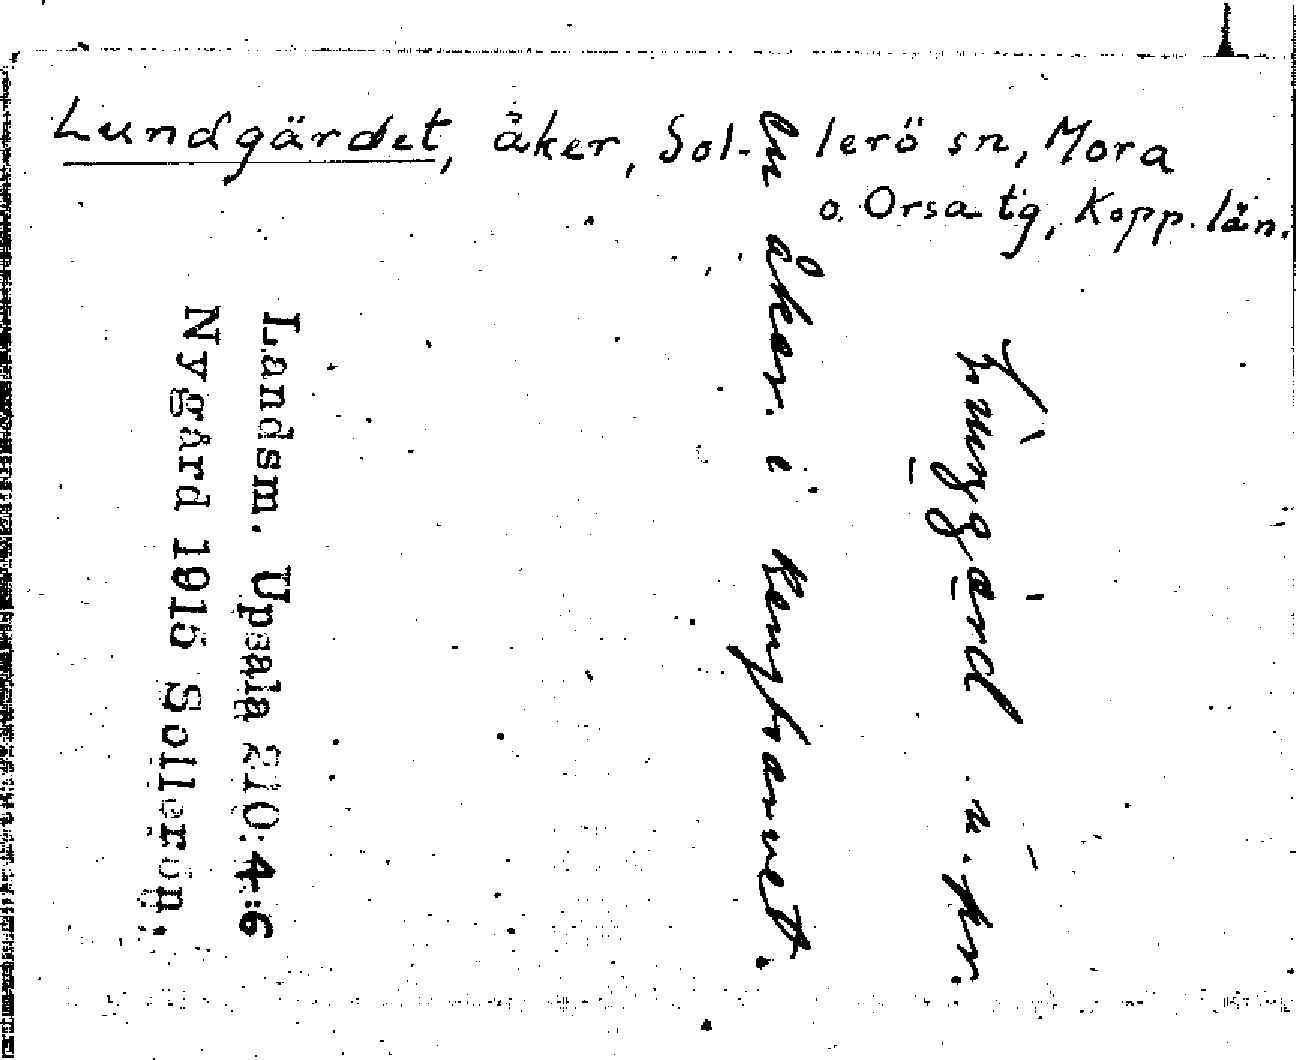 Lundgärdet, åker, Sol- lerö sn, Mora
o. Orsa tg, Kopp. län.
n. pr.
en åker i Kempharvet.
Landsm. Upsala 210:4:6
Nygård 1915 Sollerön.